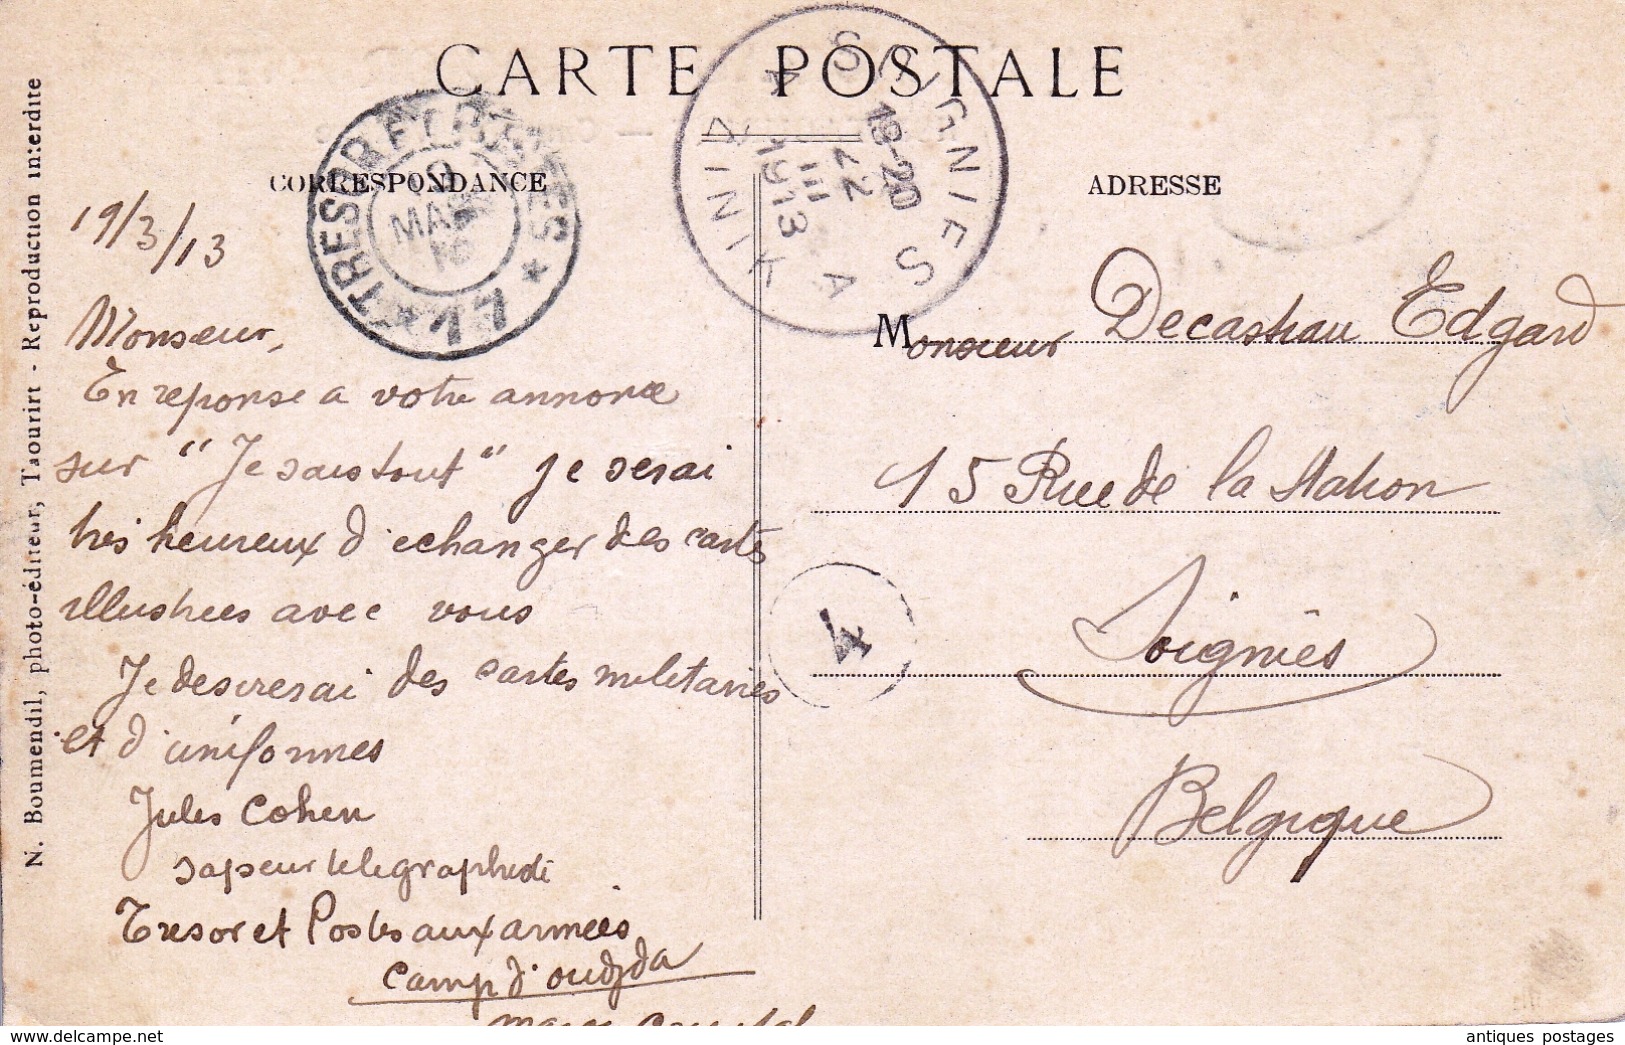 CARTE POSTALE
CORRESPONDANCE
ADRESSE
N. Boumendil, photo-éditeur, Taourirt - Reproduction interdite
TRESOR ET POSTES
MARS
SOIGNIES A
ZINIK
19-20
22
III
1913
4
19/3/13
Monsieur,
En reponse a votre annonce
sur "Je sais tout" je serai
très heureux d'echanger des cartes
illustrées avec vous
Je desirerai des cartes militaires
et d'uniformes
Jules Cohen
sapeur telegraphiste
Tresor et Postes aux armées
camp d'oudjda
Monsieur Edgard
15 Rue de la Station
Soignies
Belgique
antiques postages
www.delcampe.net